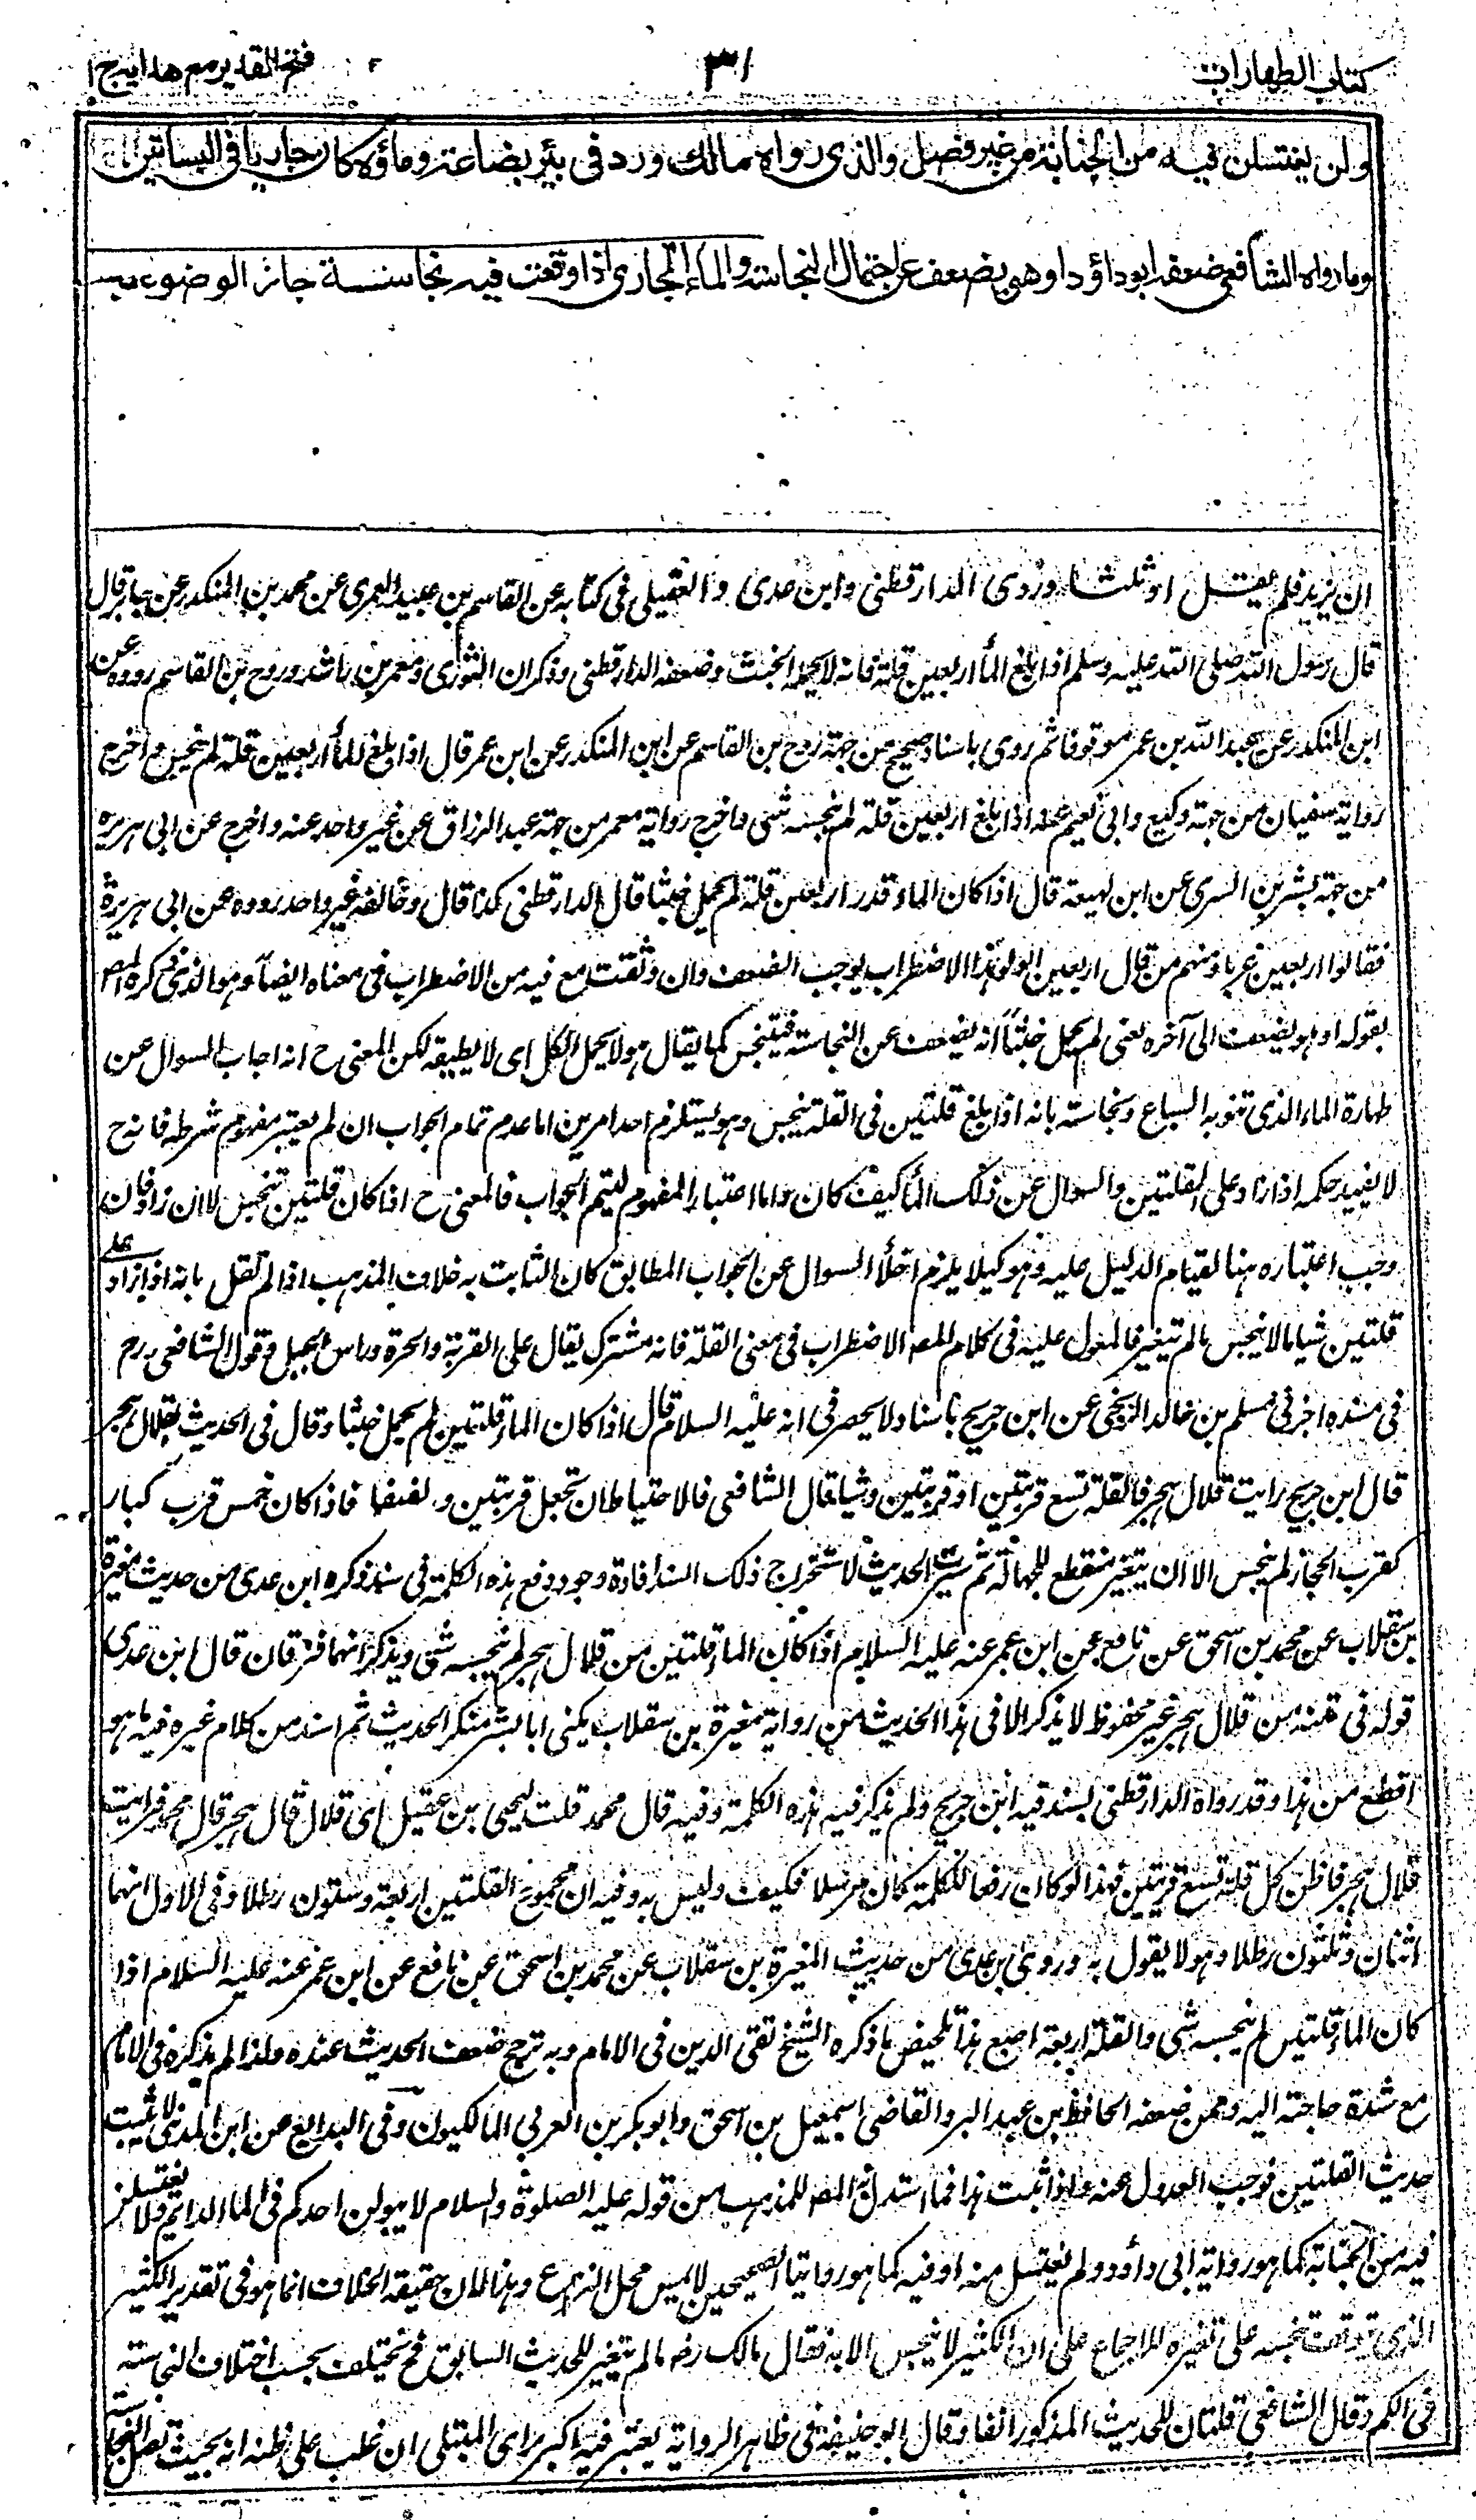 كتاب الطهارات
٣١
فتح القدير مع هدايه ج ١
ولن يغتسلن فيه من الجنابة من غير فصل والذى رواه مالك ورد فى بئر بضاعة وماؤه كان جاريا فى البساتين
وما رواه الشافعى ضعفه ابوداؤد او هو يضعف عن احتمال النجاسة والماء الجارى اذا وقعت فيه نجاسة جاز الوضوء به
ان يزيد فلم يقل او ثلثا وروى الدارقطنى وابن عدى والعقيلى فى كتابه عن القاسم بن عبيد الله العمرى عن محمد بن المنكدر عن جابر قال
قال رسول الله صلى الله عليه وسلم اذا بلغ الماء اربعين قلة فانه لا يحمل الخبث وضعفه الدارقطنى وذكر ان الثورى ومعمر بن راشد وروح بن القاسم رووه عن
ابن المنكدر عن عبد الله بن عمر موقوفا ثم روى باسناد صحيح من جهة روح بن القاسم عن ابن المنكدر عن ابن عمر قال اذا بلغ الماء اربعين قلة لم ينجس واخرج
رواية سفيان من جهة وكيع وابى نعيم عنه اذا بلغ اربعين قلة لم ينجسه شئ واخرج رواية معمر من جهة عبد الرزاق عن غير واحد عنه واخرج عن ابى هريره
من جهة بشر بن السرى عن ابن لهيعة قال اذا كان الماء قدر اربعين قلة لم يحمل خبثا قال الدارقطنى كذا قال وخالفه غير واحد رووه عن ابى هريرة
فقالوا اربعين غربا ومنهم من قال اربعين دلوا وهذا الاضطراب يوجب الضعف وان وثقت مع فيه من الاضطراب فى معناه ايضا وهو الذى ذكره المصـ
بقوله او هو يضعف الى آخره يعنى لم يحمل خبثا انه يضعف عن النجاسة فيتنجس كما يقال هو لا يحمل الكل اى لا يطيقه لكن المعنى ح انه اجاب السوال عن
طهارة الماء الذى تنوبه السباع ونجاسته بانه اذا بلغ قلتين فى القلة ينجس وهو يستلزم احد امرين اما عدم تمام الجواب ان لم يعتبر مفهوم شرطه فانه ح
لا يفيد حكمه اذا زاد على القلتين والسوال عن ذلك الماء كيف كان واما اعتبار المفهوم ليتم الجواب فالمعنى ح اذا كان قلتين تنجس لا ان زاد فان
وجب اعتباره هنا لقيام الدليل عليه وهو كيلا يلزم اخلاء السوال عن الجواب المطابق كان الثابت به خلاف المذهب اذا لم نقل بانه اذا زاد على
قلتين شيا ما لا ينجس ما لم يتغير فالمعول عليه فى كلام المصـ الاضطراب فى معنى القلة فانه مشترك يقال على القربة والجرة وراس الجبل وقول الشافعى رح
فى مسنده اخبرنى مسلم بن خالد الزنجى عن ابن جريج باسناد لا يحضرنى انه عليه السلام قال اذا كان الماء قلتين لم يحمل خبثا وقال فى الحديث بقلال هجر
قال ابن جريج رايت قلال هجر فالقلة تسع قربتين او قربتين وشيا قال الشافعى فالاحتياط ان تجعل قربتين ونصفا فاذا كان خمس قرب كبار
كقرب الحجاز لم ينجس الا ان يتغير منقطع للجهالة ثم الحديث لاستخراج ذلك السند افادة وجود رفع هذه الكلمة فى سند ذكره ابن عدى من حديث مغيرة
بن سقلاب عن محمد بن اسحق عن نافع عن ابن عمر عنه عليه السلام اذا كان الماء قلتين من قلال هجر لم ينجسه شئ ويذكر انهما فرقان قال ابن عدى
قوله فى متنه من قلال هجر غير محفوظ لا يذكر الا فى هذا الحديث من رواية مغيرة بن سقلاب يكنى ابا بشر منكر الحديث ثم اسند من كلام غيره فيه ما هو
اقطع من هذا وقد رواه الدارقطنى بسند فيه ابن جريج ولم يذكر فيه هذه الكلمة وفيه قال محمد قلت ليحيى بن عقيل اى قلال قال هجر قال محمد فرايت
قلال هجر فاظن كل قلة تسع قربتين فهذا لو كان رفعا للكلمة كان مرسلا فكيف وليس به وفيه ان مجموع القلتين اربعة وستون رطلا وفى الاول انهما
اثنان وثلثون رطلا وهو لا يقول به وروى ابن عدى من حديث المغيرة بن سقلاب عن محمد بن اسحق عن نافع عن ابن عمر عنه عليه السلام اذا
كان الماء قلتين لم ينجسه شئ والقلة اربعة اصع هذا تلخيص ما ذكره الشيخ تقى الدين فى الامام وبه ترجح ضعف الحديث عنده ولذا لم يذكره فى الامام
مع شدة حاجته اليه وممن ضعفه الحافظ بن عبد البر والقاضى اسمعيل بن اسحق وابو بكر بن العربى المالكيون وفى البدايع عن ابن المدينى لا يثبت
حديث القلتين فوجب العدول عنه واذا ثبت هذا فما استدل به المصـ للمذهب من قوله عليه الصلوة والسلام لا يبولن احدكم فى الماء الدائم ولا يغتسلن
فيه من الجنابة كما هو رواية ابى داؤد ولم يغتسل منه او فيه كما هو روايتا الصحيحين لا يمس محل النزاع وهذا لان حقيقة الخلاف انما هو فى تقدير الكثير
الذى يتوقف تنجسه على تغيره للاجماع على ان الكثير لا ينجس الا به فقال مالك رضـ ما لم يتغير للحديث السابق فح يختلف بحسب اختلاف النجاسة
فى الكم وقال الشافعى قلتان للحديث المذكور انفا وقال ابو حنيفة فى ظاهر الرواية يعتبر فيه اكبر راى المبتلى ان غلب على ظنه انه بحيث تصل النجاسة